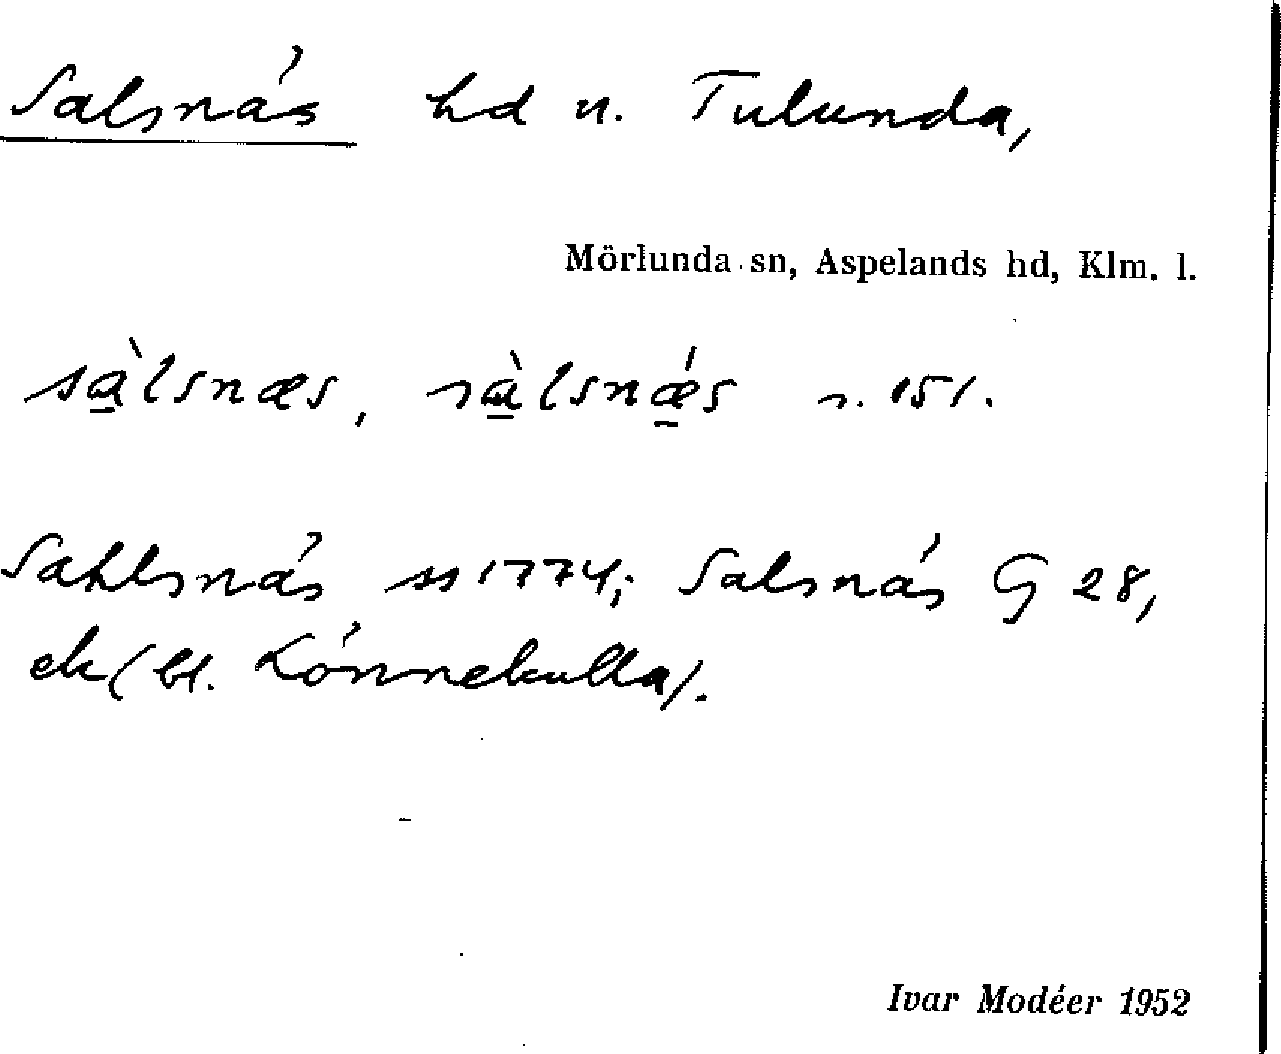 Salsnäs hd u. Tulunda,
Mörlunda sn, Aspelands hd, Klm. l.
sàlsnæs, sàlsnǽs s. 151.
Sahlsnäs ss 1774; Salsnäs G 28,
ek (bl. Lönnekulla).
Ivar Modéer 1952